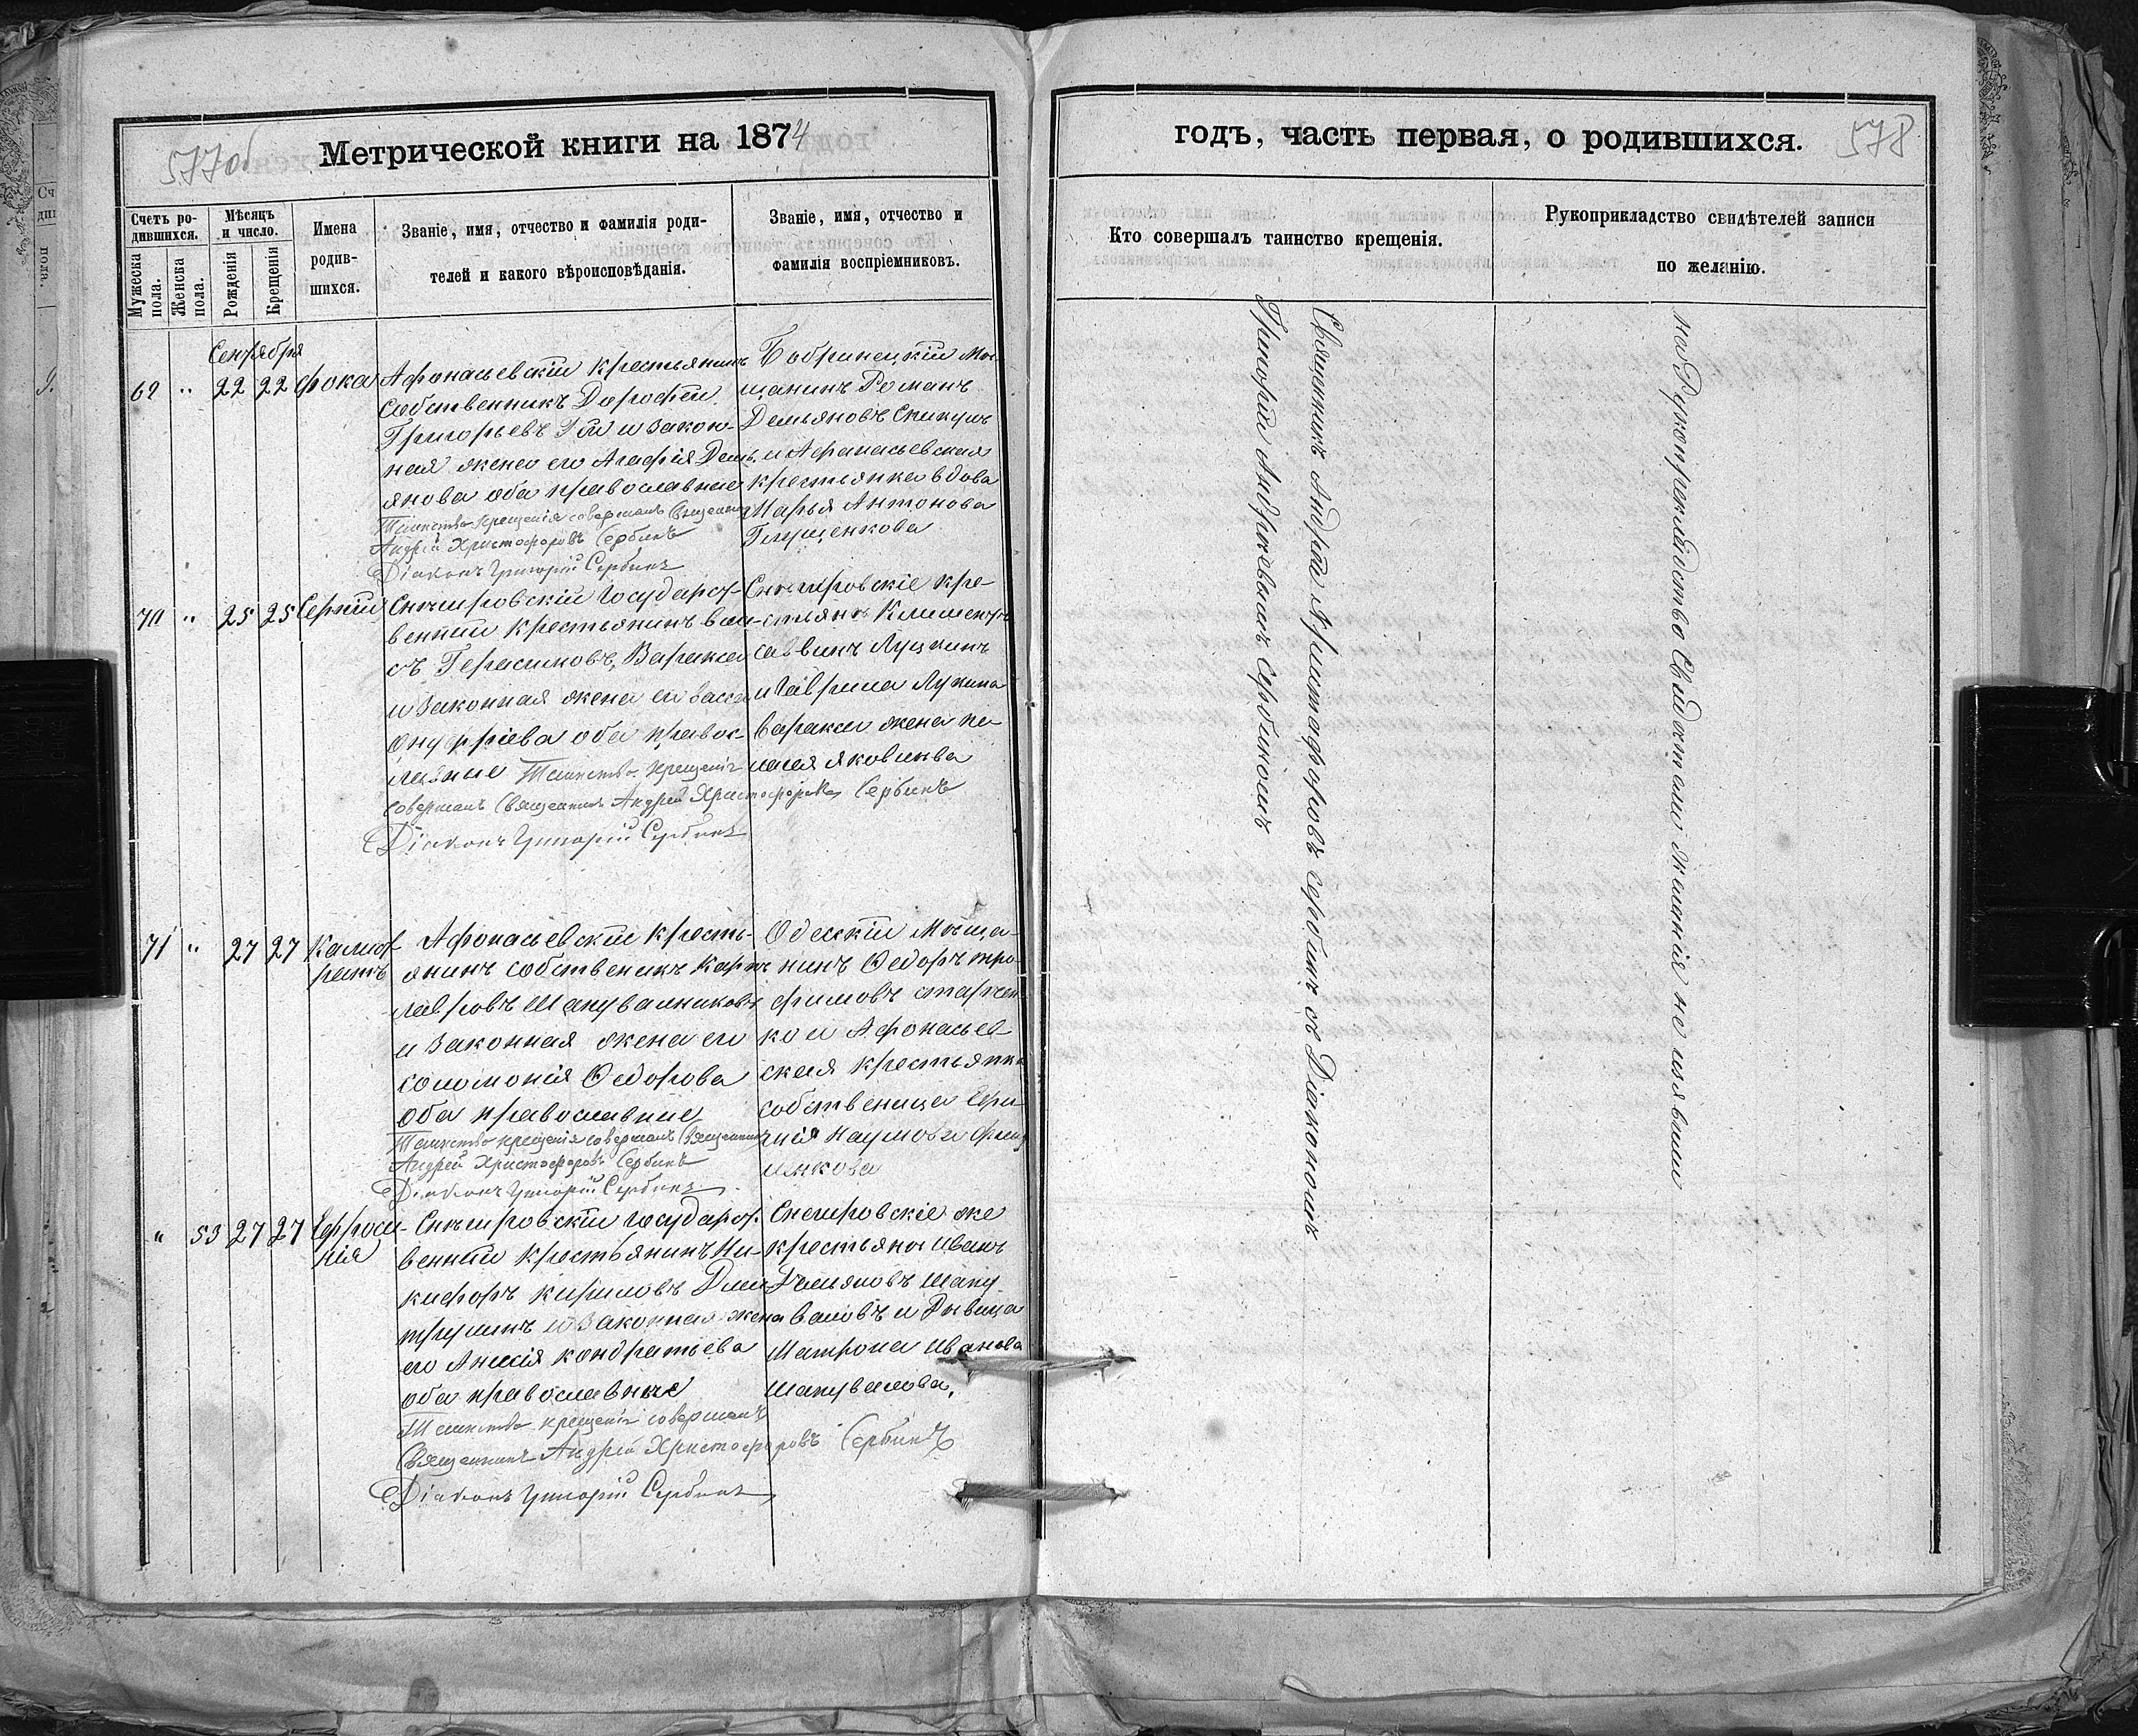 577об
Метрической книги на 1874
Счетъ ро-
дившихся.
Мѣсяцъ
и число.
Имена
родив-
шихся.
Званіе, имя, отчество и фамилія роди-
телей и какого вѣроисповѣданія.
Званіе, имя, отчество и
фамилія воспріемниковъ.
Мужеска
пола.
Женска
пола.
Рожденія
Крещенія
Сентября
69 " 22 22 Фока
Афонасьевскій крестьянинъ
Собственникъ Дорофей
Григорьевъ и закон-
ная жена его Агафія Демь
янова оба православные
Таинство крещенія совершалъ Священникъ
Андрей Христофоровъ Сербинъ
Діаконъ Григорій Сербинъ
Бобринецкій Мѣ
щанинъ Романъ
Демьяновъ
и Афанасьевская
крестьянка вдова
Марья Антонова
Глущенкова
70 " 25 25 Сергій
Снѣгировскій Государст-
венный крестьянинъ
Герасимовъ Варакса
и законная жена его Васса
Онуфріева оба правос-
лавные Таинство крещенія
совершалъ Священникъ Андрей Христофоровъ Сербинъ
Діаконъ Григорій Сербинъ
Снѣгировскіе кре-
стьяне Климентъ
Саввинъ Луцкинъ
и Гаврила Лукина
Варакси жена Пе
лагея Яковлева
71 " 27 27 Калист
ратъ
Афонасьевскій кресть-
янинъ собственикъ Карпъ
Лавровъ Шаповалниковъ
и законная жена его
Соломонія Федорова
оба православные
Таинство крещенія совершалъ Священникъ
Андрей Христофоровъ Сербинъ
Діаконъ Григорій Сербинъ
Одесскій Мѣща-
нинъ Федоръ Тро-
фимовъ Старчен
ко и Афонасьев
ская крестьянка
собственица
Наумова
енкова
" 53 27 27 Ефроси-
нія
Снѣгировскій Государст.
венный крестьянинъ Ни-
кифоръ Кириловъ Дми
трушинъ и законная жена
его Анисія Кондратьева
оба православные
Таинство крещенія совершалъ
Священникъ Андрей Христофоровъ Сербинъ
Діаконъ Григорій Сербинъ
Снѣгировскіе же
крестьяне Иванъ
Демьяновъ Шапу
валовъ и Дѣвица
Матрона Иванова
Шапувалова.
годъ, часть первая, о родившихся.
578
Кто совершалъ таинство крещенія.
Рукоприкладство свидѣтелей записи
по желанію.
Священникъ Андрей Христофоровъ Сербинъ съ Діакономъ
Григоріемъ Андреевымъ Сербиномъ
На Рукоприкладство Свидѣтели желанія не изявили